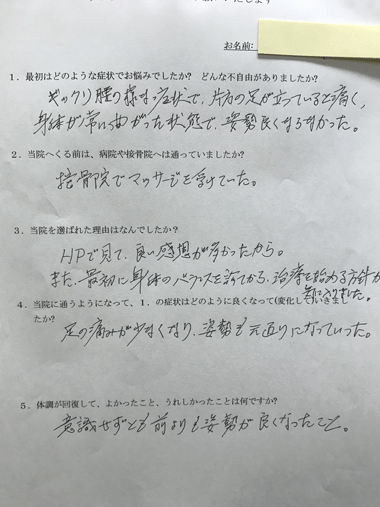 お名前:
1．最初はどのような症状でお悩みでしたか？ どんな不自由がありましたか？
ギックリ腰の様な症状で、片方の足が立っていると痛く、
身体が常に曲がった状態で、姿勢良くなろなかった。
2．当院へくる前は、病院や接骨院へは通っていましたか？
接骨院でマッサージを受けていた。
3．当院を選ばれた理由はなんでしたか？
HPで見て、良い感想が多かったから。
また、最初に身体のバランスを診てから、治療を始める方針が
気に入りました。
4．当院に通うようになって、1．の症状はどのように良くなって(変化し)いきまし
たか？
足の痛みが少なくなり、姿勢も元通りになっていった。
5．体調が回復して、よかったこと、うれしかったことは何ですか？
意識せずとも前よりも姿勢が良くなったこと。